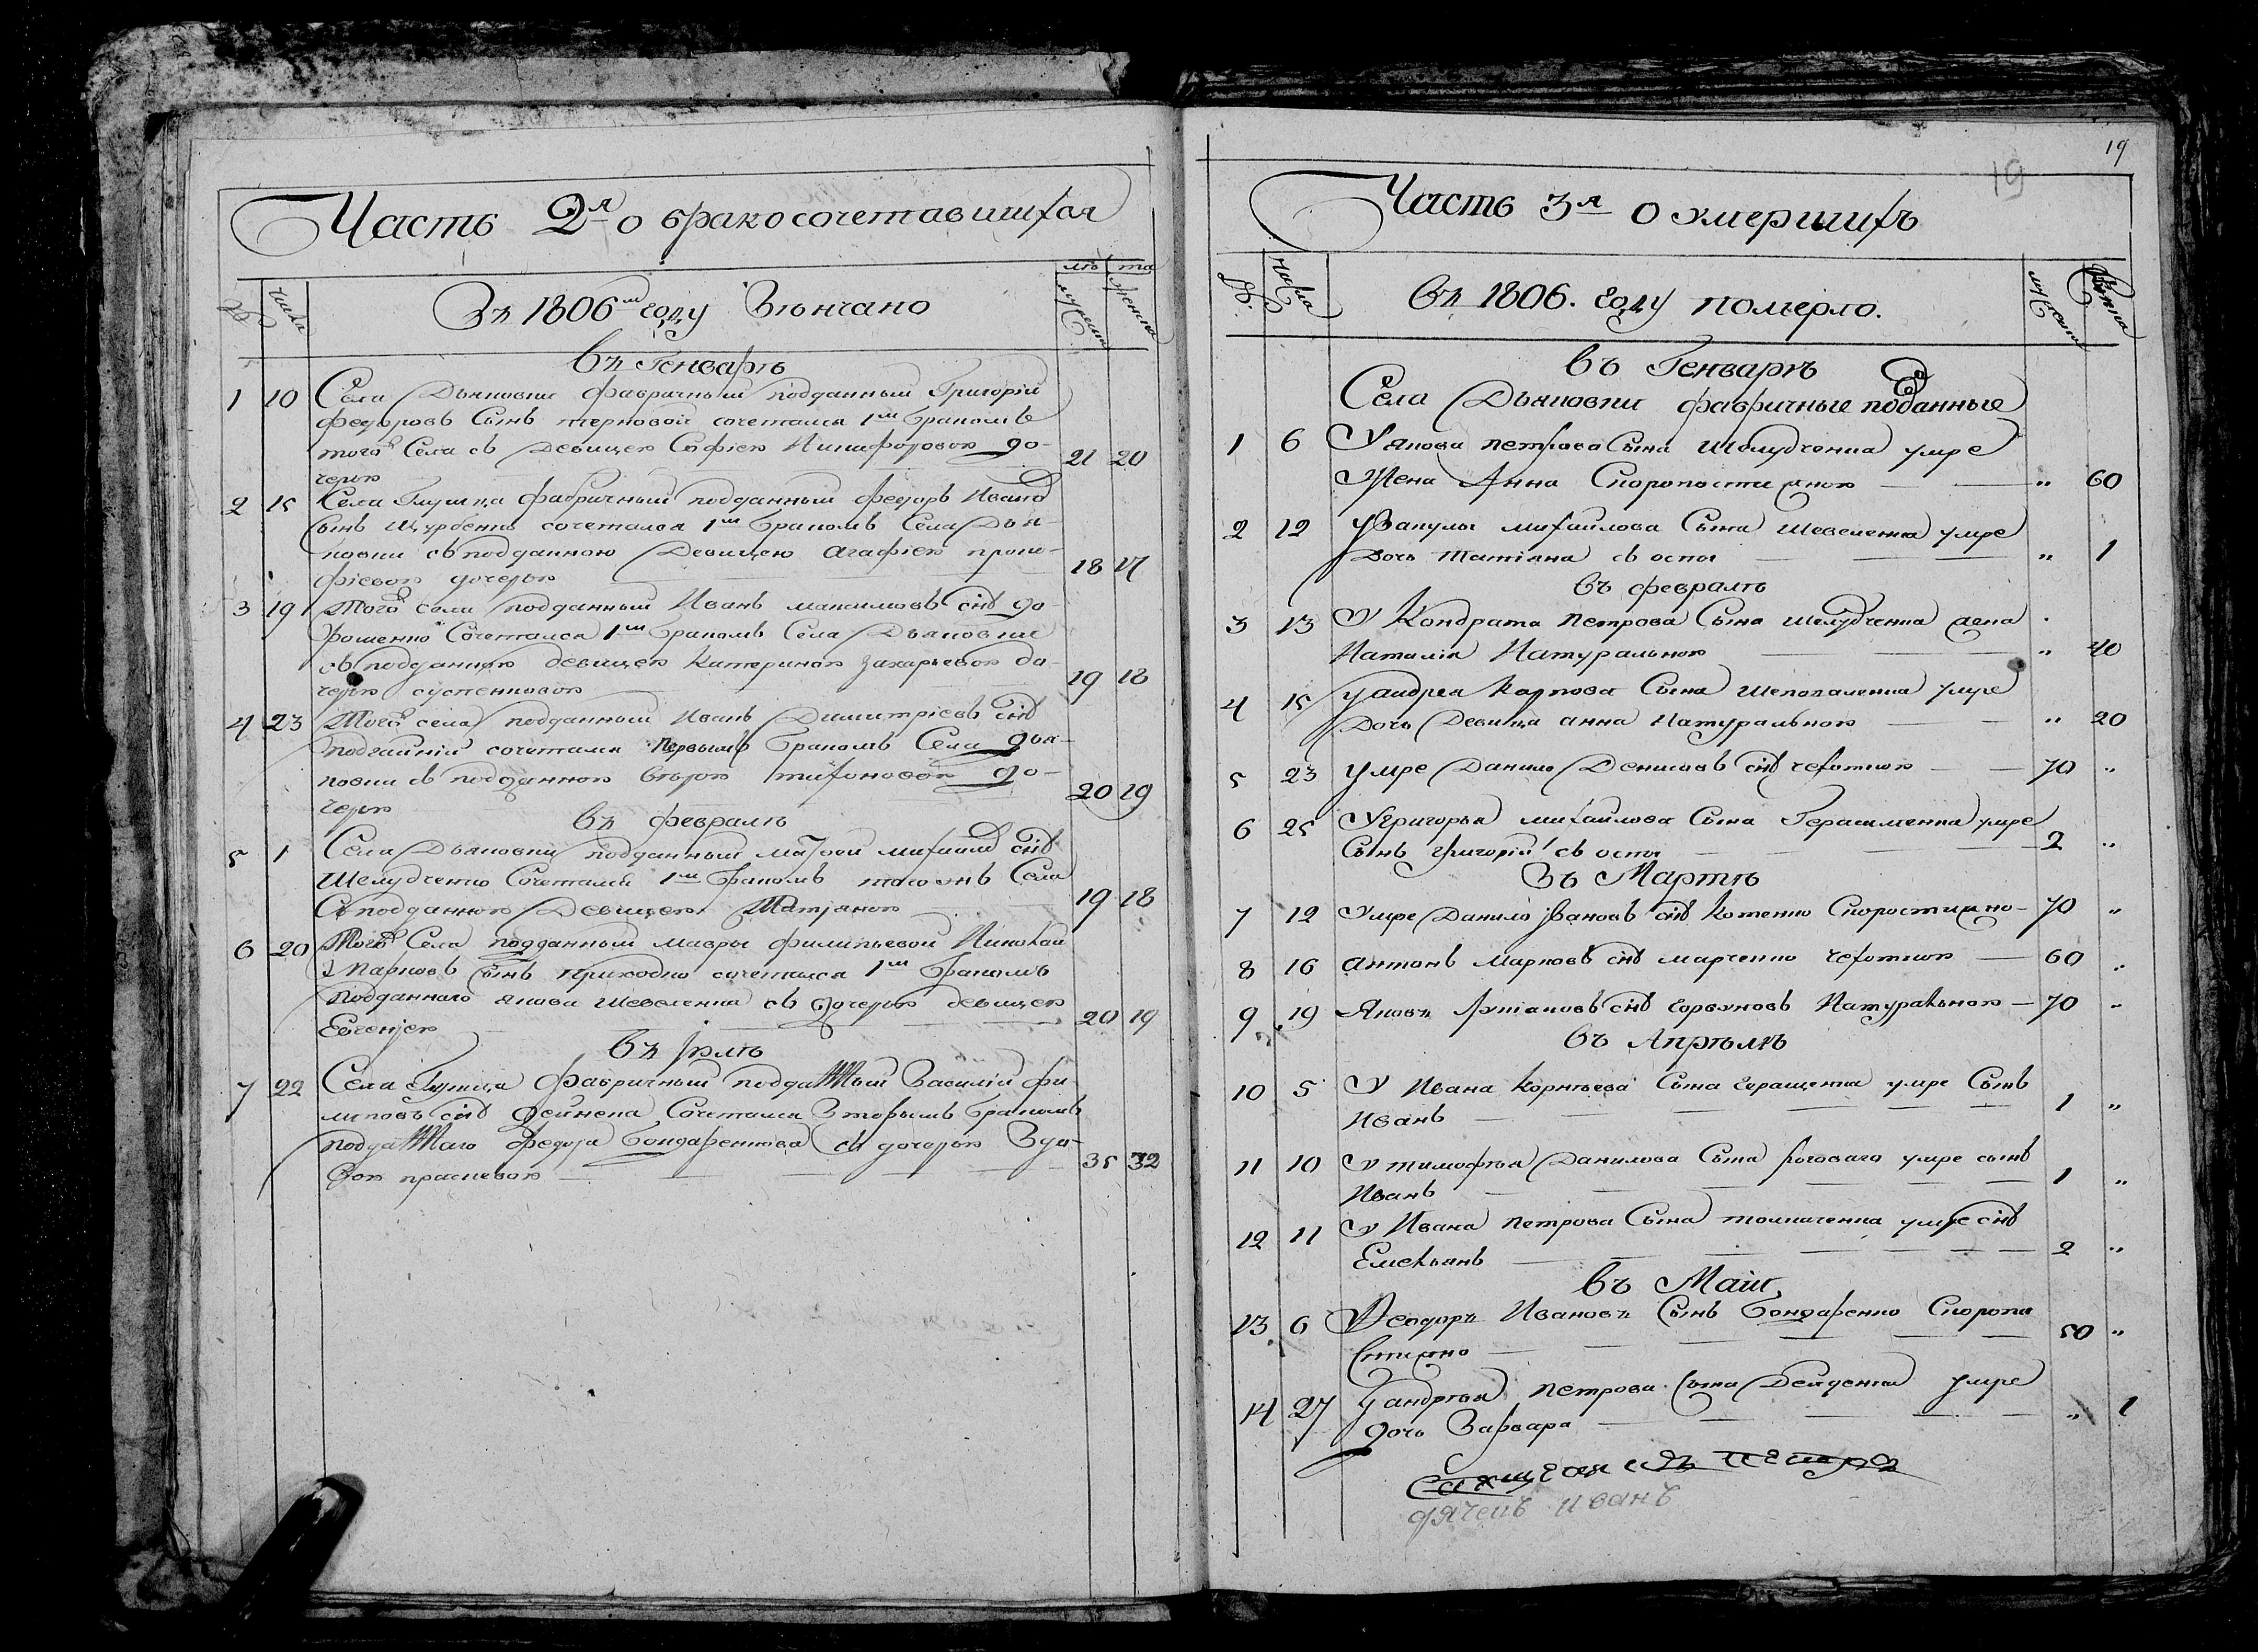 Часть 2я о бракосочетавшихся
№
числа
Въ 1806м году Вѣнчано
лѣ та
мужеска
женска
въ Генварѣ
1 10 Села Дьяковки фабричный подданный Григорій
федоровъ Сынъ терновой сочетался 1м бракомъ
того Села съ Девицею Софіею Никифоровою до-
черю 21 20
2 15 Села Глушца фабричный подданный федоръ Ивано
Сынъ Щурбенко сочетался 1м бракомъ Села Дья-
ковки съ подданною Девицею агафіею проко-
фіевою дочерью 18 17
3 19 Того села подданный Иванъ максимовъ снъ до-
рошенко Сочетался 1м бракомъ Села Дьяковки
съ подданною девицею катериною захарьевою до-
черю 19 18
4 23 Того села подданный Иванъ Димитріевъ снъ
подгайній сочетался первымъ бракомъ Села дья-
ковки съ подданною тихоновою до-
черю 20 19
въ февралѣ
5 1 Села Дьяковки подданный михаила снъ
Шелудченко Сочетался 1м бракомъ того жъ Села
Съ подданною Девицею Татіяною 19 18
6 20 Того Села подданный мавры филипьевой
Карповъ Сынъ приходко сочетался 1м бракомъ
подданнаго якова Шевеленка съ дочерью девицею
Евгеніею 20 19
въ юлѣ
7 22 Села Глушца фабричный подданный Василій фи-
липовъ снъ дейнека Сочетался Вторымъ бракомъ
подданнаго федора бондаренкова съ дочерью Вдо-
вою 35 32
19
19
Часть 3я о умершихъ
№
числа
въ 1806. году померло.
мужеска
женска
въ Генварѣ
Села Дьяковки фабричные подданные
1 6 У якова петрова Сына Шелудченка умре
Жена Анна Скоропостижною " 60
2 12 у Вакулы михайлова Сына Шевеленка умре
Дочь Татіяна съ оспы " 1
въ февралѣ
3 13 У Кондрата Петрова Сына Шелудченка жена
Наталія Натуральною " 40
4 15 у андрея карпова Сына умре
Дочь Девица анна Натуральною " 20
5 23 умре Данило Денисовъ снъ чехоткою 70 "
6 25 У григорья михайлова Сына Герасименка умре
Сынъ григорій съ оспы 2 "
Въ Мартѣ
7 12 Умре Данило Ивановъ снъ котенко Скоростижно 70 "
8 16 антонъ марковъ снъ марченко чехоткою 60 "
9 19 Яковъ снъ горбуновъ Натуральною 70 "
въ Апрѣлѣ
10 5 У Ивана корнѣева Сына геращенка умре Сынъ
Иванъ 1 "
11 10 У тимофѣя Данилова Сына роговаго умре сынъ
Иванъ 1 "
12 11 У Ивана петрова Сына толкаченка умре снъ
Емельянъ 2 "
въ Маіи
13 6 Феодоръ Ивановъ Сынъ бондаренко Скоропо
стижно 50 "
14 27 У андрѣя петрова Сына умре
дочь Варвара " 1
Священникъ петръ
дячекъ иванъ